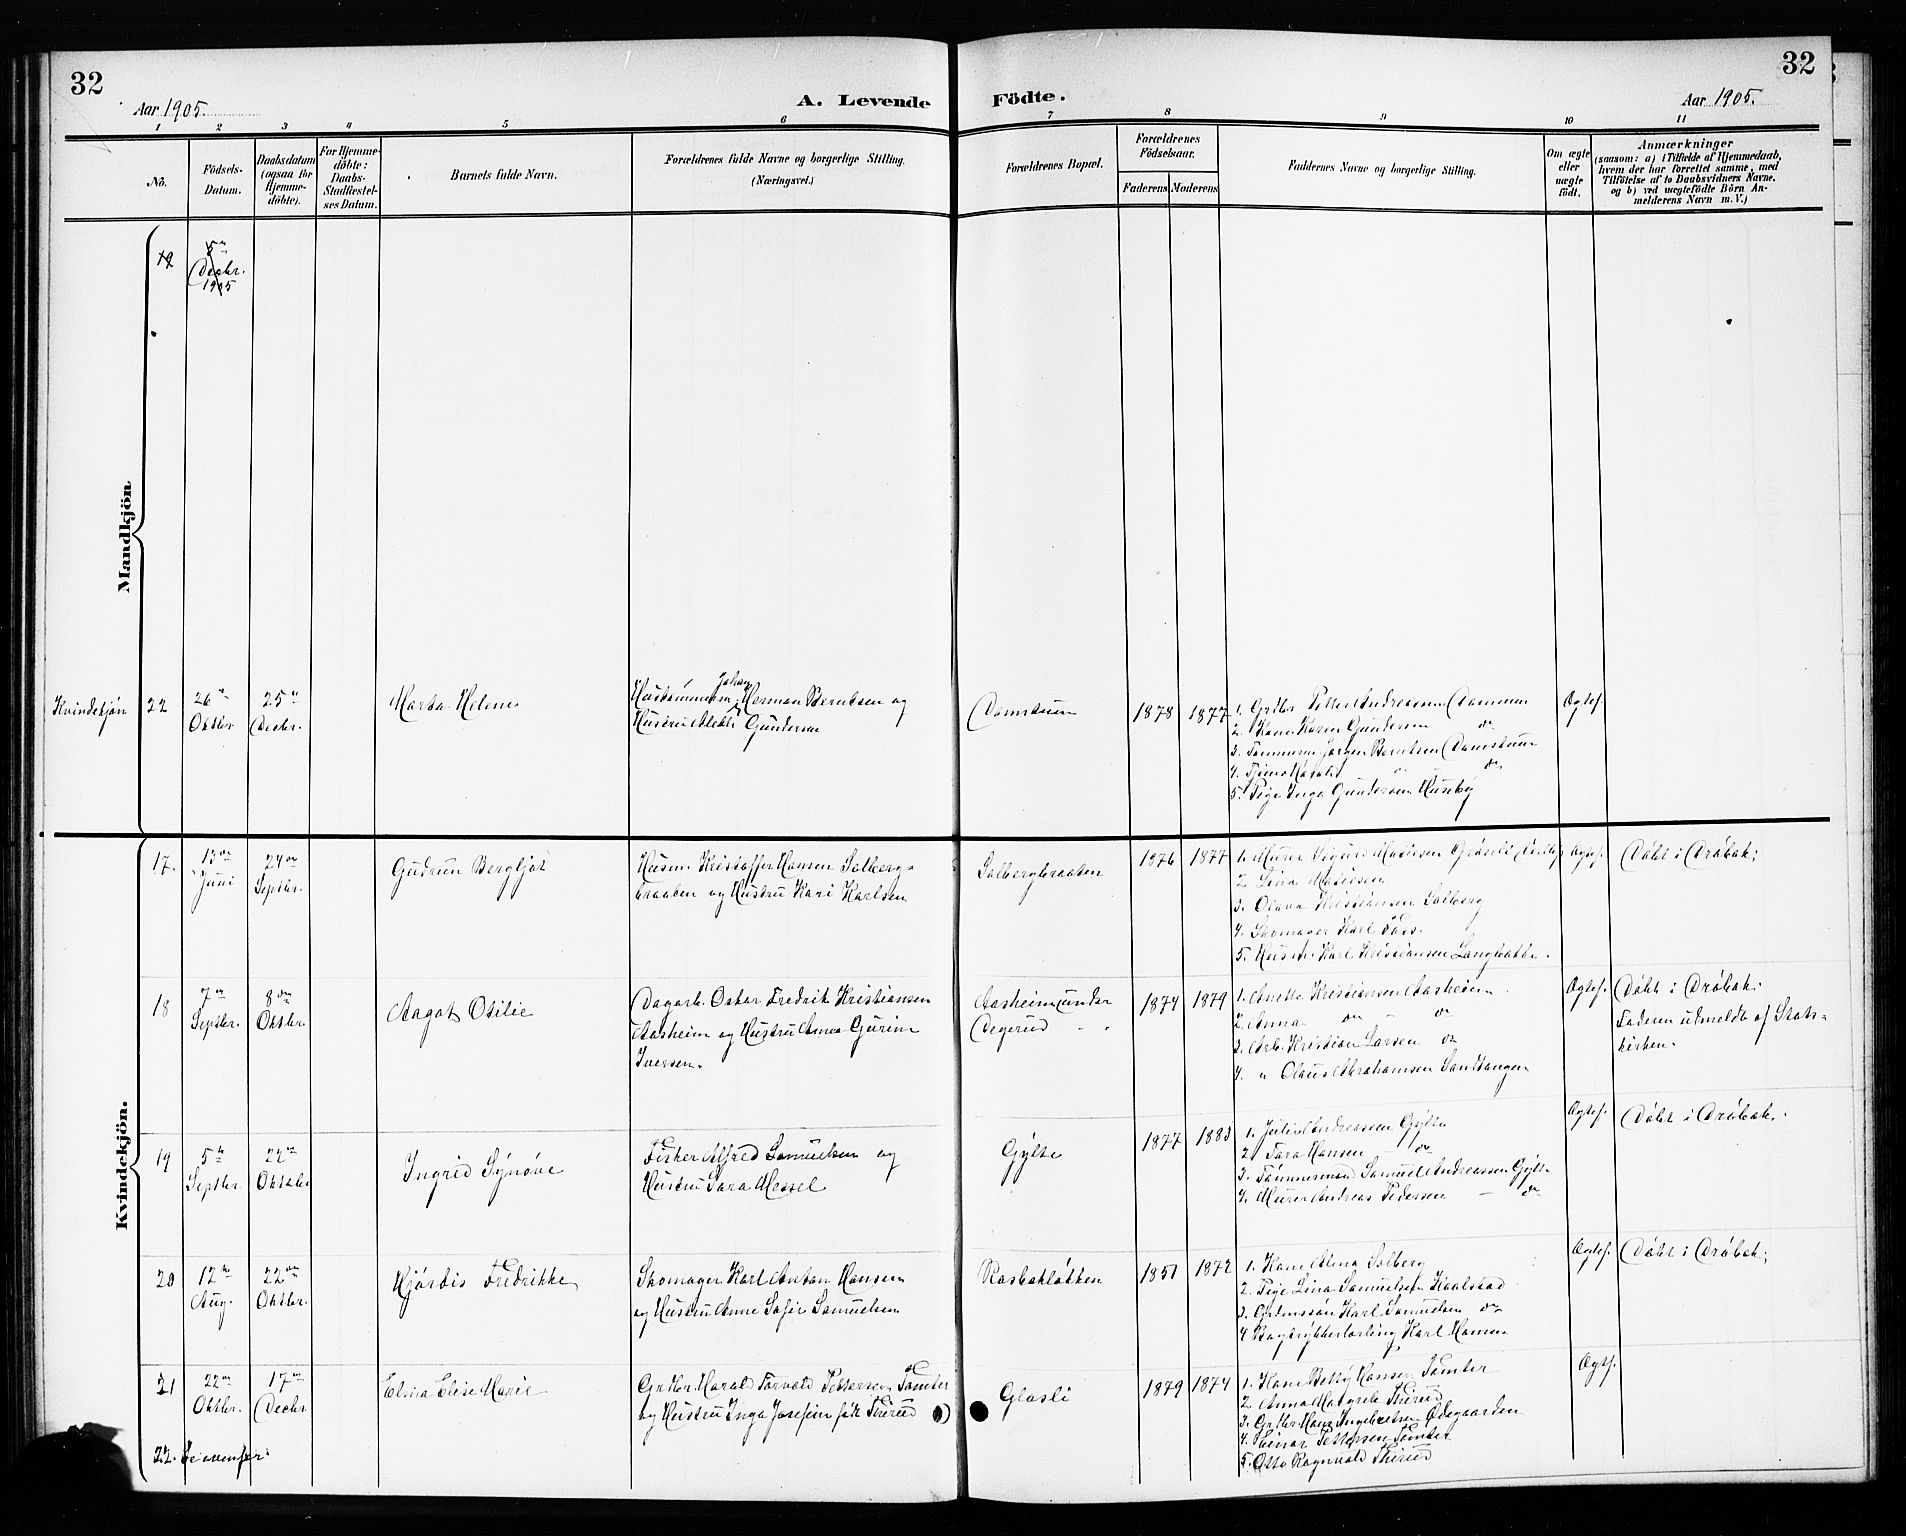 32
Aar 1905.
A. Levende
Födte.
Aar 1905.
32
1
2
3
4
5
6
7
8
9
10
11
No.
Födsels-
Datum.
Daabsdatum
(ogsaa for
Hjemme-
döbte).
For Hjemme-
döbte:
Daabs-
Stadfestel-
ses Datum.
Barnets fulde Navn.
Forældrenes fulde Navne og borgerlige Stilling.
(Næringsvei.)
Forældrenes Bopæl.
Forældrenes
Födselsaar.
Faderens
Moderens
Faddernes Navne og borgerlige Stilling.
Om ægte
eller
uægte
födt.
Anmærkninger
(saasom: a) i Tilfælde af Hjemmedaab,
hvem der har forrettet samme, med
Tilföielse af to Daabsvidners Navne,
og b) ved uægtefödte Börn An-
melderens Navn m. V.)
Mandkjön
19
5te
Decbr.
1905
Kvindekjön
22
26
Oktbr.
25
Decbr.
Marta Helene
Johan
Herman Berntsen og
Hustru Gundersen
1878
1877
1. Grdbr Petter Andreassen
2. Kone Karen Gundersen do
3. Tømmerm. Jørgen Berntsen
4. do
5. Pige Inga Gundersen Huseby
Ægtef.
Kvindekjön.
17.
13de
Juni
24de
Septbr.
Gudrun Bergljot
Husm Kristoffer Hansen Solberg-
braaten og Hustru Kari Karlsen
Solbergbraaten
1876
1877
1. Murer Sigurd
2. Lina
3. Olava Kristiansen Solberg
4. Skomager Karl
5. Husm. Karl Kristiansen Langbakke.
Ægtef.
Døbt i Drøbak;
18
7de
Septbr.
8de
Oktbr.
Aagot Otilie
Dagarb. Oskar Fredrik Kristiansen
Aasheim og Hustru Anna Gurine
Iversen.
Aasheim under
Degerud
1874
1879
1. Anette Kristiansen Aasheim
2. Anna do - do
3. Arb. Kristian Larsen do
4. " Olaus Abrahamsen Sandtangen
Ægtef.
Døbt i Drøbak.
Faderen udmeldt af Stats-
kirken.
19
5te
Septbr.
22de
Oktober
Ingrid Synøve
Fisker Alfred Samuelsen og
Hustru Sara Messel
Gylte
1877
1883
1. Julie Andreassen Gylte
2. Hansen do
3. Tømmermand Samuel Andreassen Gylte
4. Murer Andreas Pedersen - do
Ægtef.
Døbt i Drøbak.
20
12te
Aug.
22de
Oktbr.
Hjørdis Fredrikke
Skomager Karl Anton Hansen
og Hustru Anne Sofie Samuelsen
1851
1872
1. Kone Alma Solberg
2. Pige Lina Samuelsen Kaalstad
3. Grdmssøn Karl Samuelsen do
4. Bogtrykkerlærling Karl Hansen
Ægtef.
Døbt i Drøbak;
21
22de
Oktbr.
17de
Decbr
Elma Elise Marie
Grdbr. Harald Torvald Pettersen Tomter
og Hustru Inga Josefine født Therud
Glasli
1879
1874
1. Kone Betty Hansen Tomter
2. Anna Therud
3. Grdbr. Hans Ingebretsen Ødegaarden
4. Einar Pettersen Tomter
5. Otto Ragnvald Therud
Ægtf.
22. Se ovenfor: